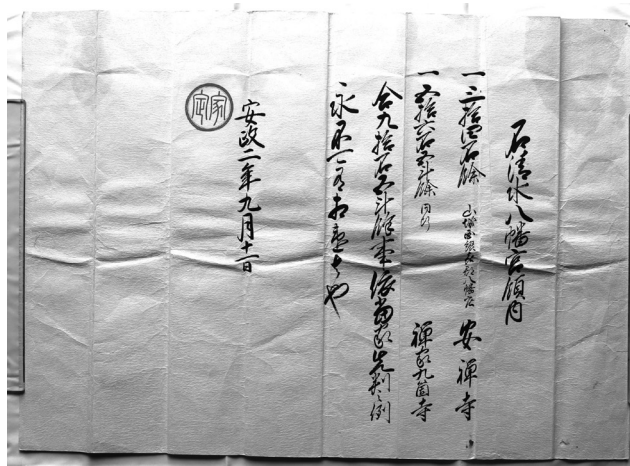 石清水八幡宮領内
一三拾四石餘 山城国綴喜郡八幡庄 安禅寺
一五拾六石五斗餘 同所 禅家九箇寺
合九拾石五斗餘事依当家先判之例
永不可有相違者也
安政二年九月十一日
家定